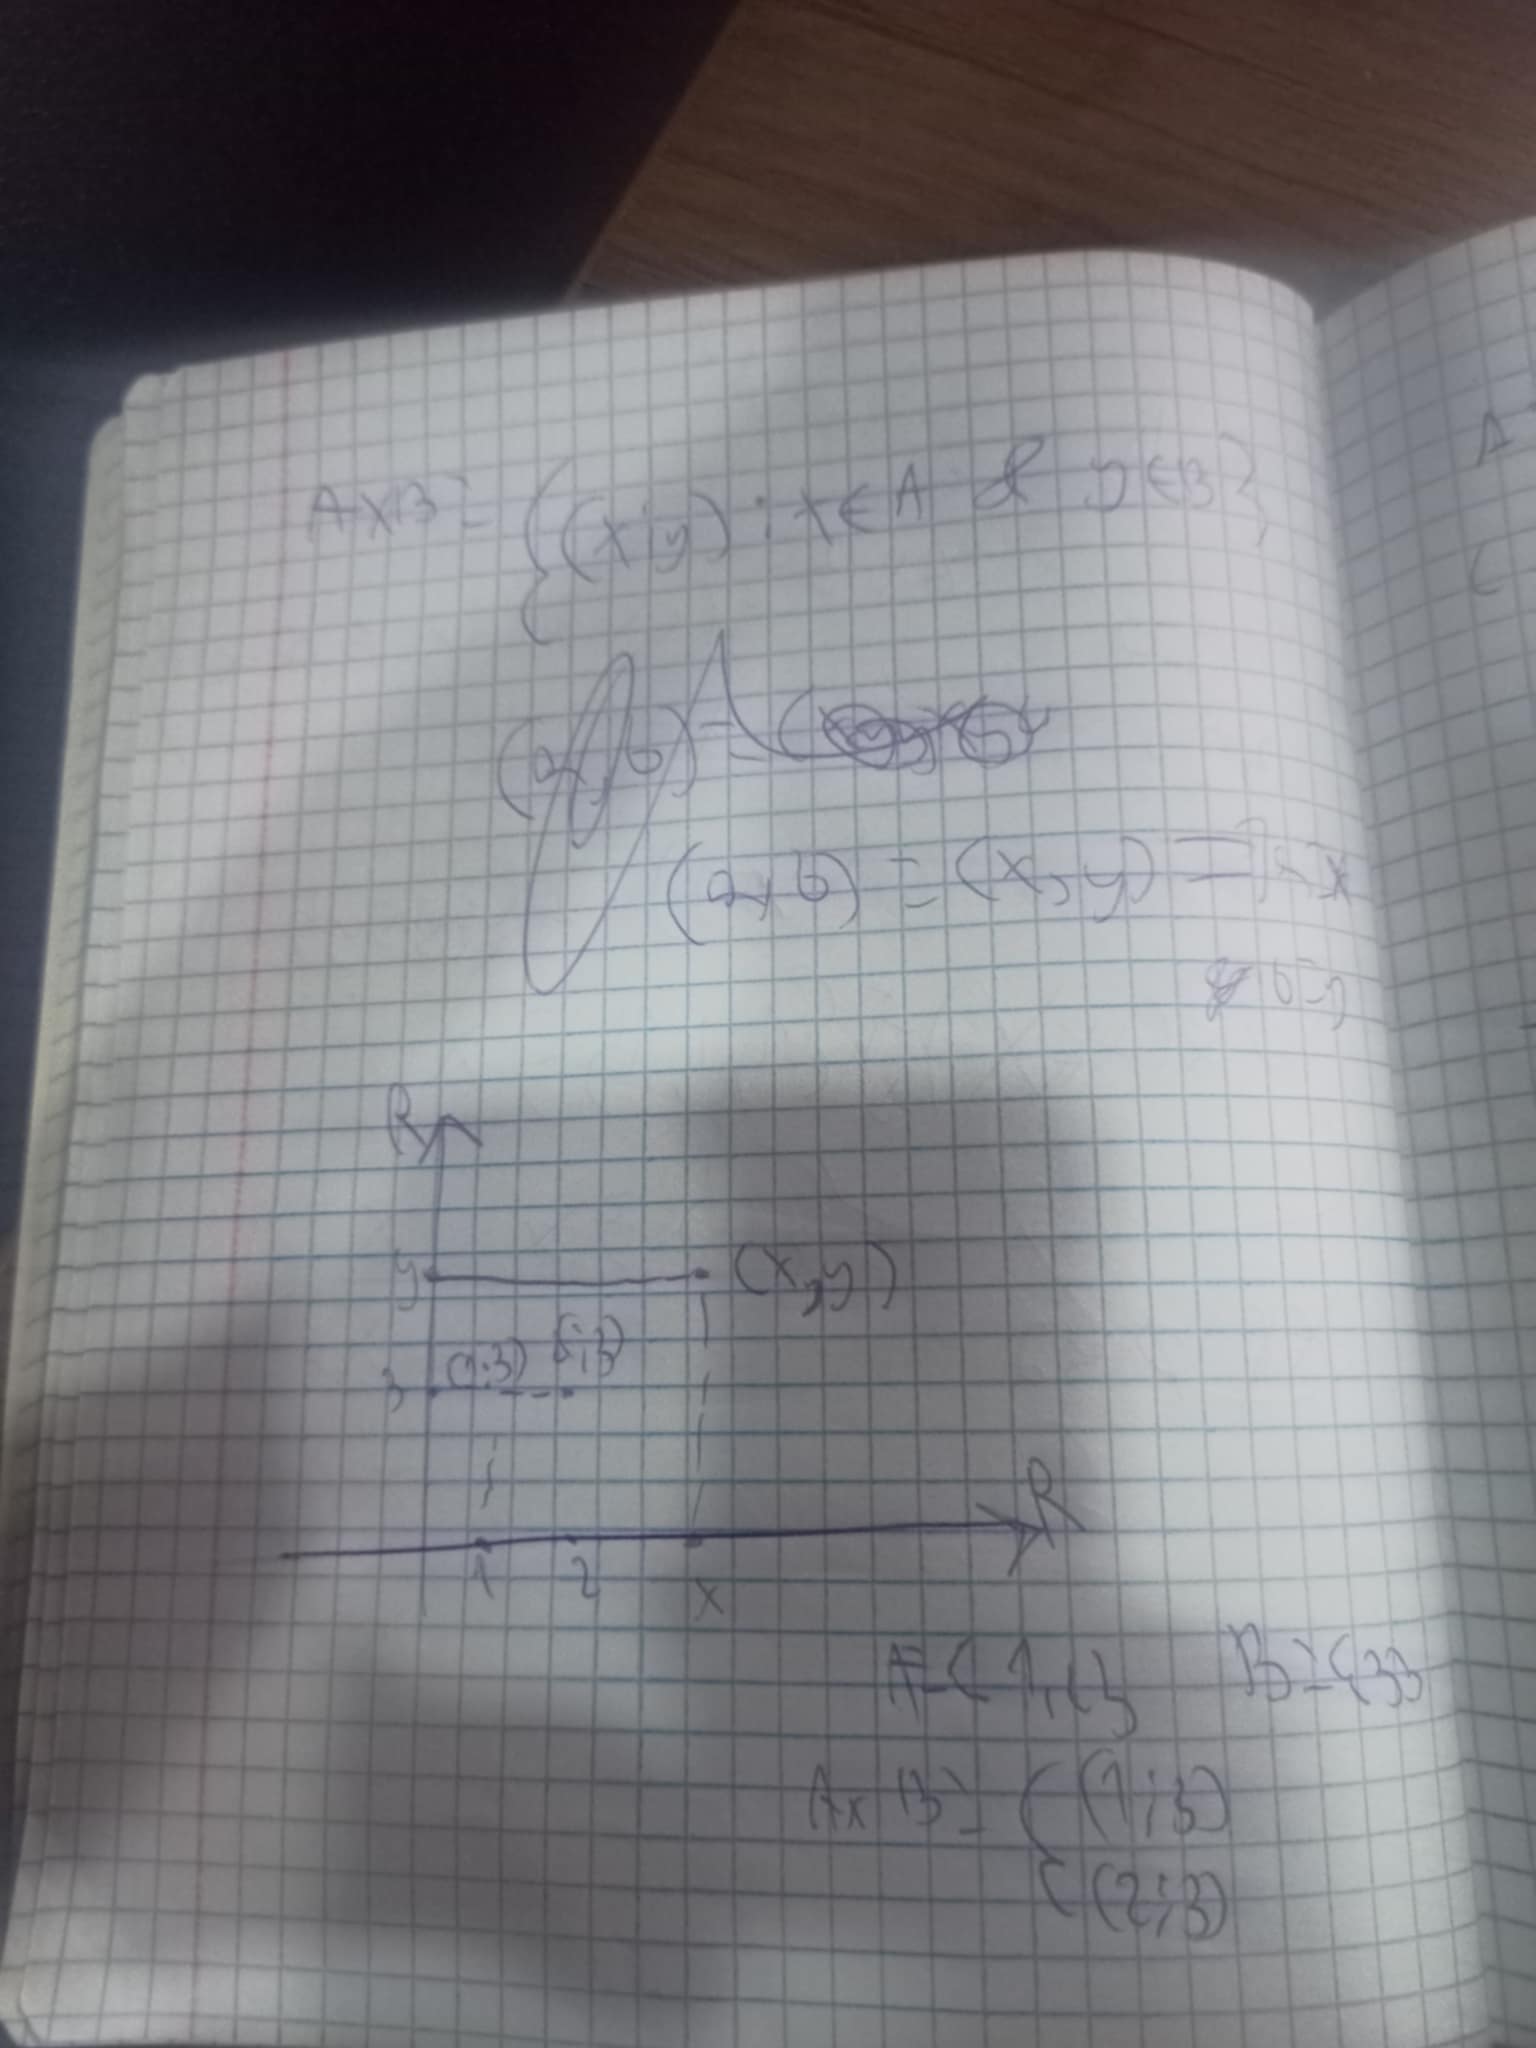 A×B = {(x;y) : x∈A & y∈B}
(a,b) = (
(a,b) = (x,y) => a=x
b=y
R
y (x,y)
(1;3) (2;3)
3
R
1 2 x
A={1,2} B={3}
A×B = {(1;3)
(2;3)
A